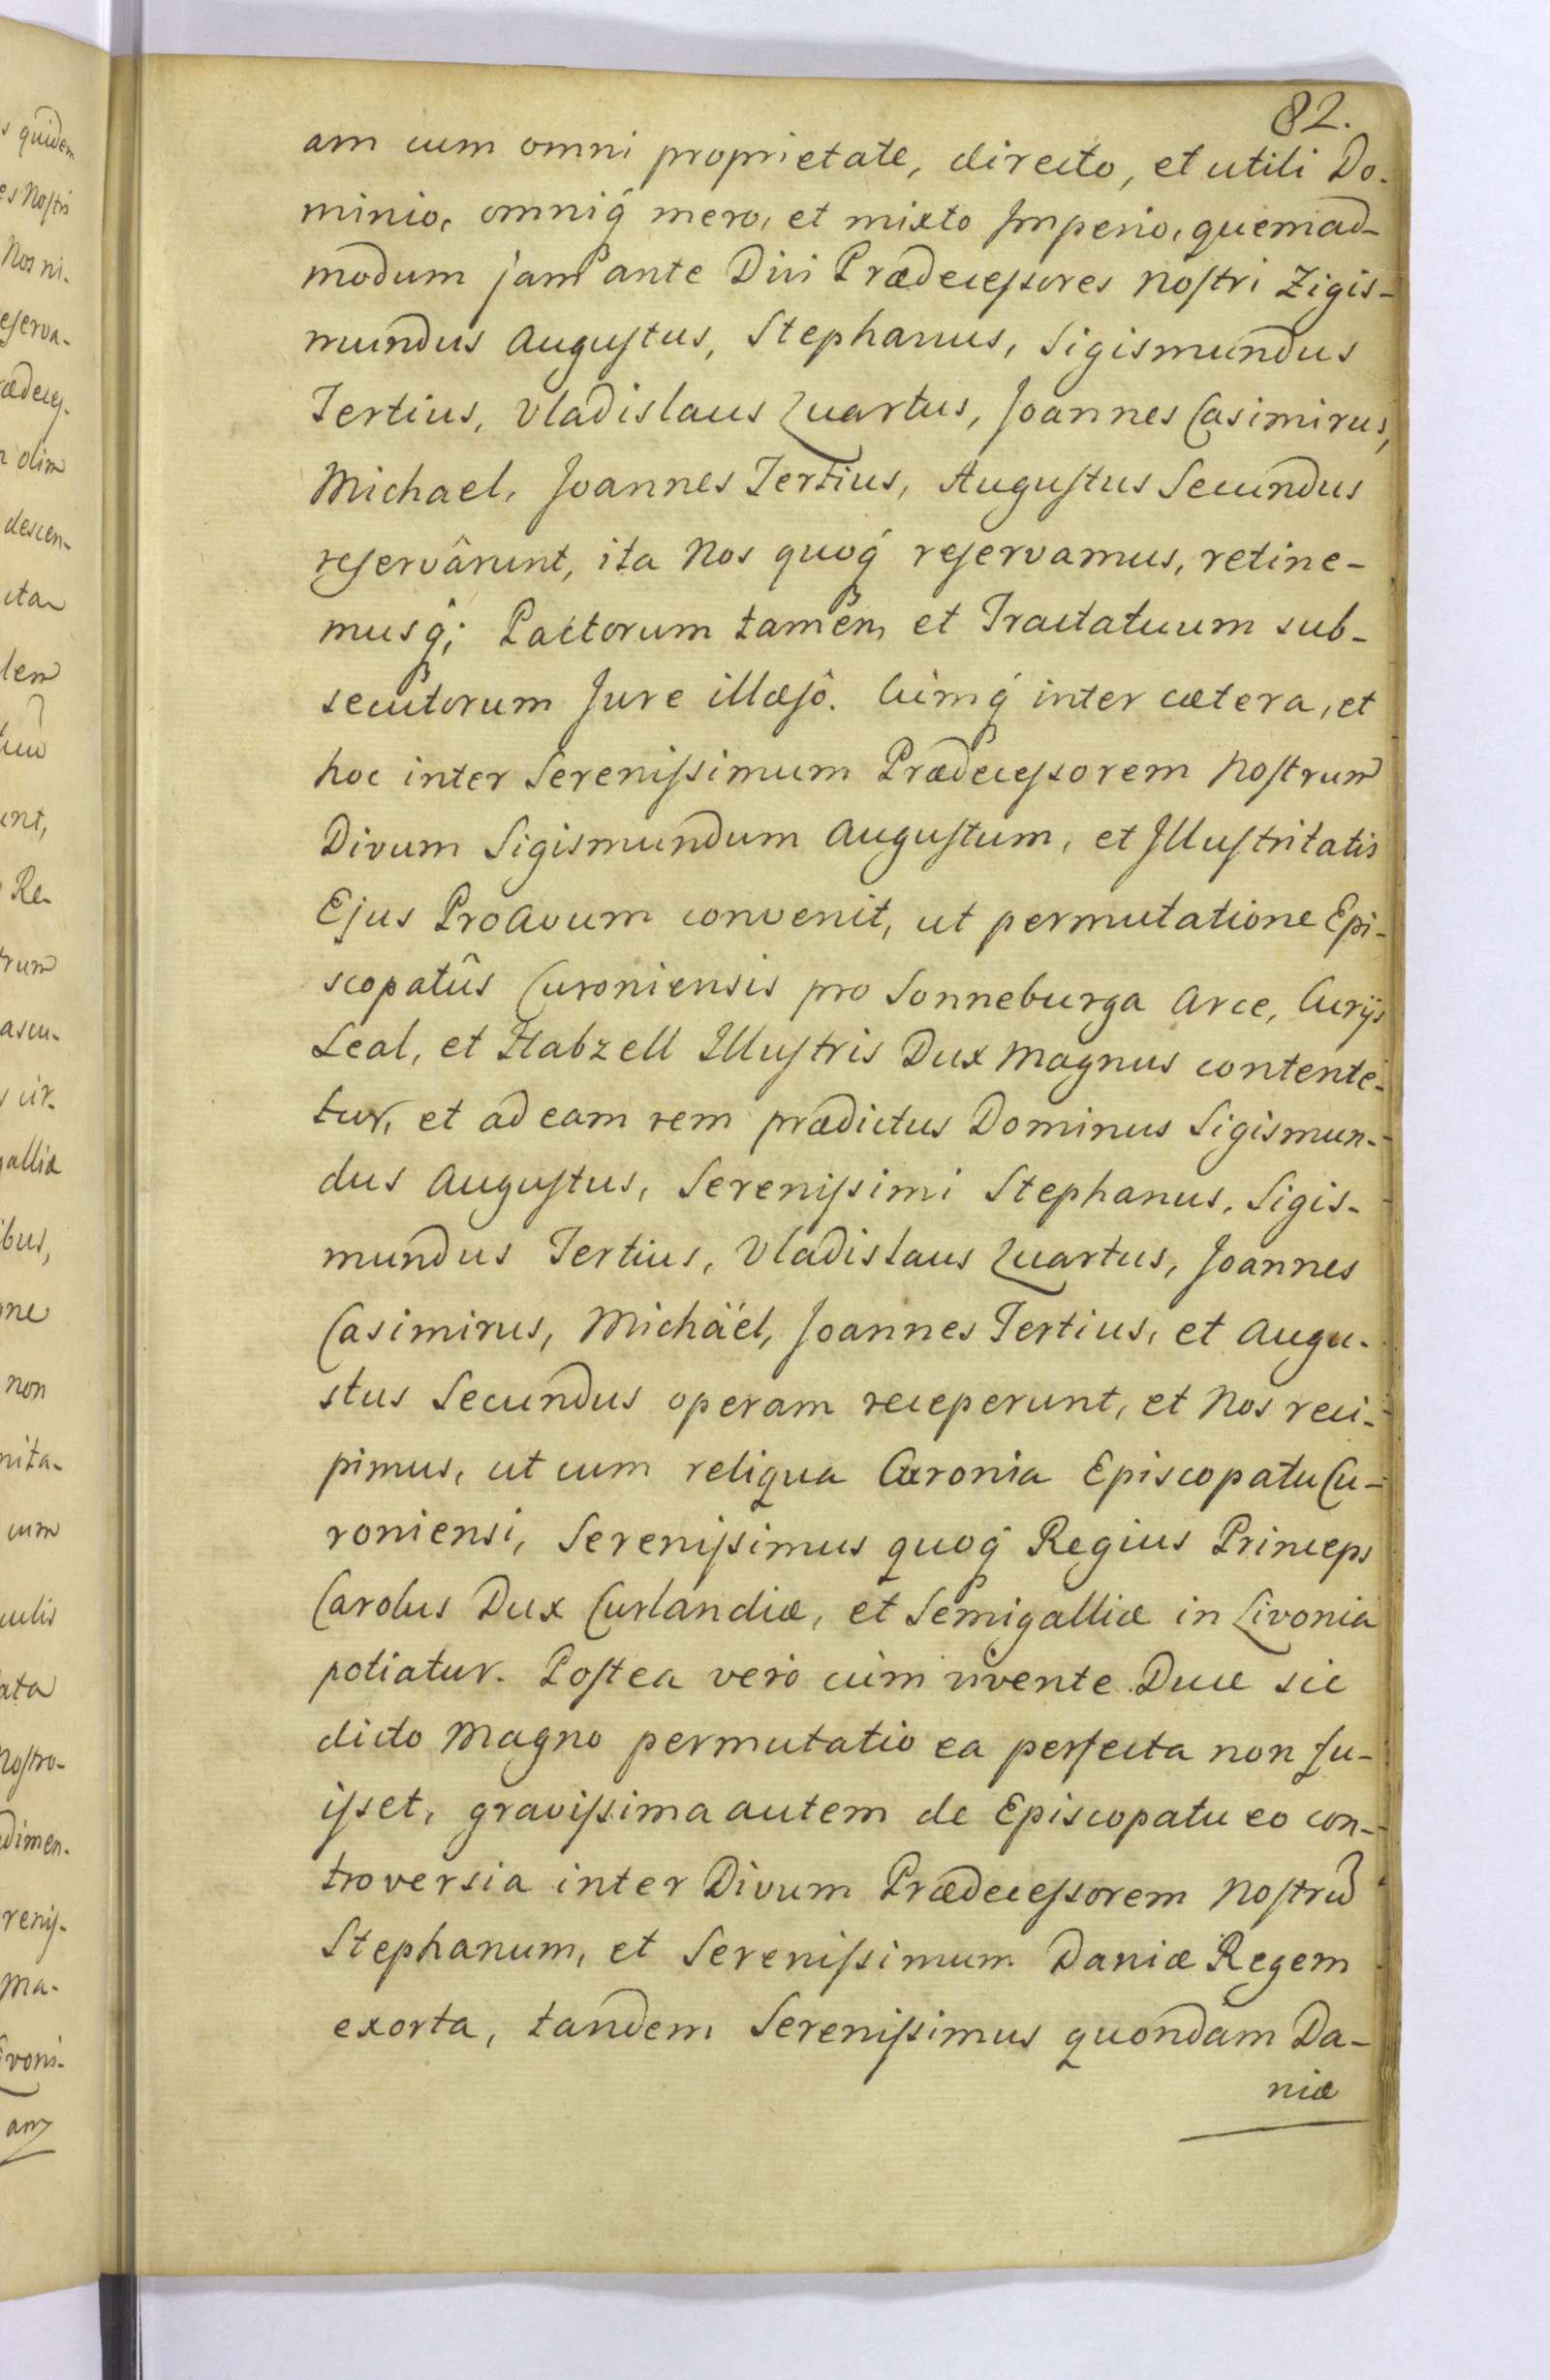 82.
am cum omni proprietate, directo, et utili Do-
minio, omniq́ mero, et mixto Imperio, quemad-
modum jam ante Divi Prædecessores Nostri Zigis-
mundus Augustus, Stephanus, Sigismundus
Tertius, Vladislaus Quartus, Joannes Casimirus,
Michael, Joannes Tertius, Augustus Secundus
reservârunt, ita Nos quoq́ reservamus, retine-
musq́; Pactorum tamen, et Tractatuum sub-
secutorum Jure illæsô. Cùmq́ inter cætera, et
hoc inter Serenissimum Prædecessorem Nostrum
Divum Sigismundum Augustum, et Illustritatis
Ejus Proavum convenit, ut permutatione Epi-
scopatûs Curoniensis pro Sonneburga Arce, Curijs
Leal, et Habzell Illustris Dux Magnus contente-
tur, et ad eam rem prædictus Dominus Sigismun-
dus Augustus, Serenissimi Stephanus, Sigis-
mundus Tertius, Vladislaus Quartus, Joannes
Casimirus, Michäel, Joannes Tertius, et Augu-
stus Secundus operam receperunt, et Nos reci-
pimus, ut cum reliqua Curonia Episcopatu Cu-
roniensi, Serenissimus quoq́ Regius Princeps
Carolus Dux Curlandiæ, et Semigalliæ in Livonia
potiatur. Postea verò cùm vivente Duce sic
dicto Magno permutatio ea perfecta non fu-
isset, gravissima autem de Episcopatu eo con-
troversia inter Divum Prædecessorem Nostrũ
Stephanum, et Serenissimum Daniæ Regem
exorta, tandem Serenissimus quondam Da-
niæ
s quidem
es Nostri
Nos ni-
eserva-
rædeces-
n olim
descen-
lem
unt,
Re-
rum
ascu-
s cir-
galliæ
ibus,
one
non
nita-
cum
culis
ata
Nostro-
dimen-
renis-
Ma-
ivoni-
am